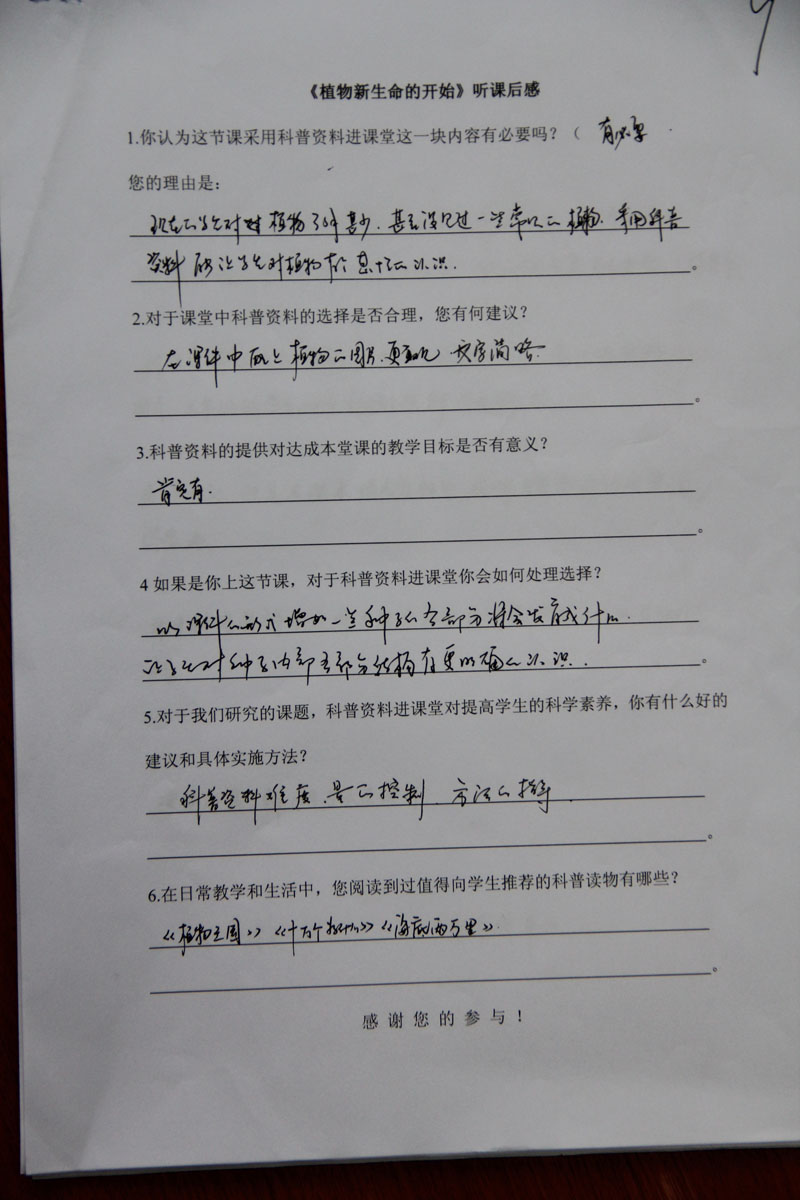 《植物新生命的开始》听课后感
1.你认为这节课采用科普资料进课堂这一块内容有必要吗？（ 有必要
您的理由是：
现在的学生对植物了解甚少，甚至没见过一些常见的植物，采用科普
资料 能让学生对植物有 的认识。
2.对于课堂中科普资料的选择是否合理，您有何建议？
在课件中配上植物的图片，更直观 文字简略
。
3.科普资料的提供对达成本堂课的教学目标是否有意义？
肯定有。
。
4 如果是你上这节课，对于科普资料进课堂你会如何处理选择？
以课件的形式增加一些种子的各部分将会发育成什么，
让学生对种子内部各部分结构有更明确的认识。
5.对于我们研究的课题，科普资料进课堂对提高学生的科学素养，你有什么好的
建议和具体实施方法？
科普资料难度、量的控制，方法的指导
。
6.在日常教学和生活中，您阅读到过值得向学生推荐的科普读物有哪些？
《植物王国》《十万个为什么》《海底两万里》
。
感谢您的参与！